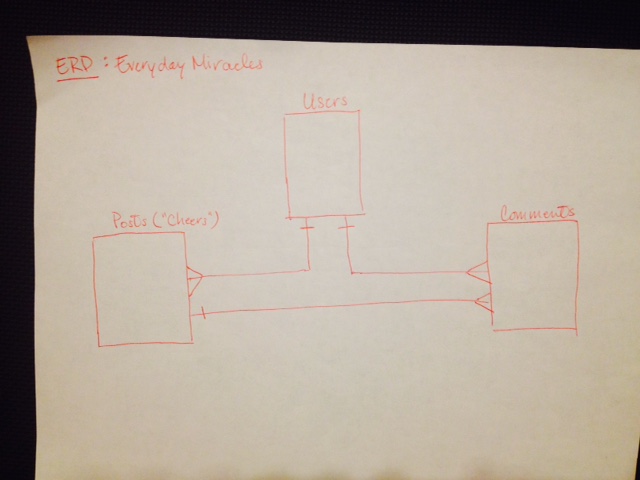 ERD : Everyday Miracles
Users
Posts ("Cheers")
Comments